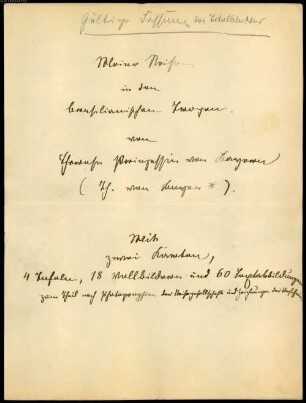 Gültige Fassung des Titelblattes
Meine Reise
in den
brasilianischen Tropen.
von
Therese Prinzessin von Bayern
(Th. von Bayer *).
Mit
zwei Karten,
4 Tafeln, 18 Vollbildern und 60 Textabbildungen
zum Theil nach Photographien der Reisegesellschaft und Zeichnungen der Verfasserin